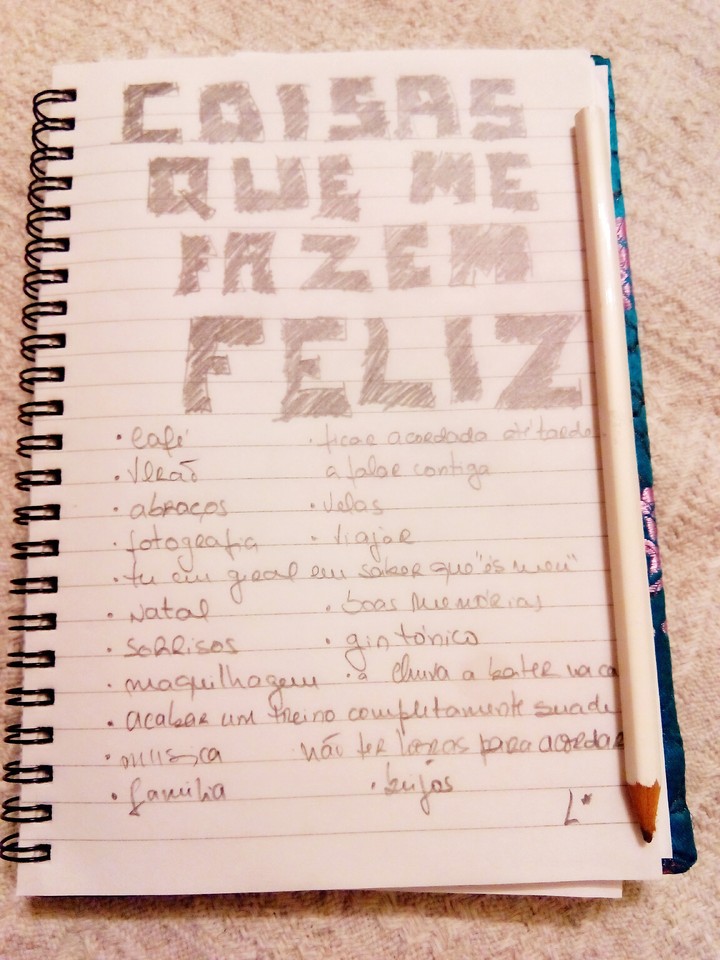 COISAS
QUE ME
FAZEM
FELIZ
• Café • ficar acordada até tarde
• Verão a falar contigo
• abraços • velas
• fotografia • viajar
• tu em geral em saber que "és meu"
• Natal • boas memórias
• sorrisos • gin tónico
• maquilhagem • a chuva a bater na ca
• acabar um treino completamente suad
• música não ter horas para acordar
• família • beijos
L*